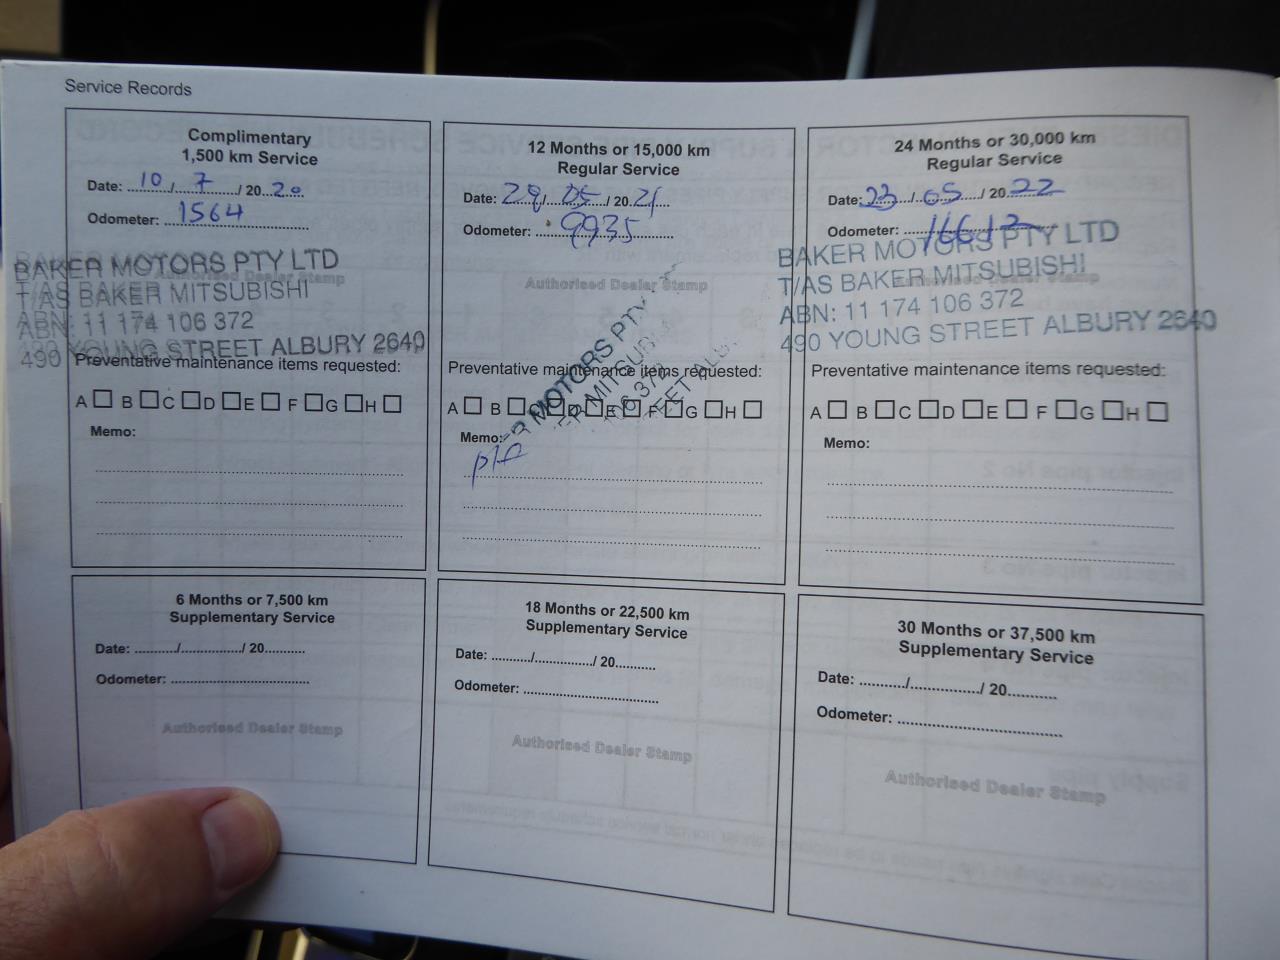 Service Records
Complimentary
1,500 km Service
Date: 10 / 7 / 20 20
Odometer: 1564
Authorised Dealer Stamp
BAKER MOTORS PTY LTD
T/AS BAKER MITSUBISHI
ABN: 11 174 106 372
490 YOUNG STREET ALBURY 2640
Preventative maintenance items requested:
A B C D E F G H
Memo:
12 Months or 15,000 km
Regular Service
Date: / 05 / 20 21
Odometer: 9935
Authorised Dealer Stamp
MOTORS PTY
MITSUB
6 372
Preventative maintenance items requested:
A B C D E F G H
Memo:
24 Months or 30,000 km
Regular Service
Date: 23 / 05 / 20 22
Odometer:
BAKER MOTORS PTY LTD
T/AS BAKER MITSUBISHI
ABN: 11 174 106 372
490 YOUNG STREET ALBURY 2640
Preventative maintenance items requested:
A B C D E F G H
Memo:
6 Months or 7,500 km
Supplementary Service
Date: ........../............../ 20..........
Odometer: ..................................
Authorised Dealer Stamp
18 Months or 22,500 km
Supplementary Service
Date: ........../............../ 20..........
Odometer: ..................................
Authorised Dealer Stamp
30 Months or 37,500 km
Supplementary Service
Date: ........../............../ 20..........
Odometer: ..................................
Authorised Dealer Stamp